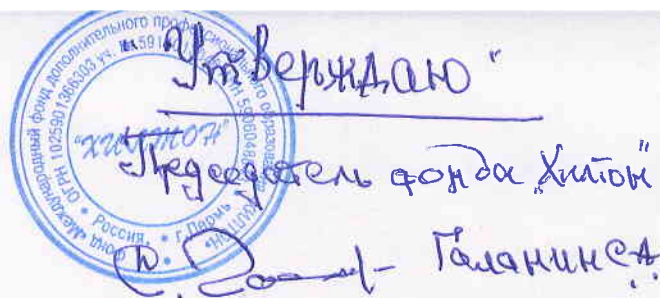 Утверждаю"
Председатель фонда "Хилтон"
Галанин С.А.
"ХИЛТОН"
Международный фонд дополнительного профессионального образования
ОГРН 1025901366303
Россия, • г. Пермь